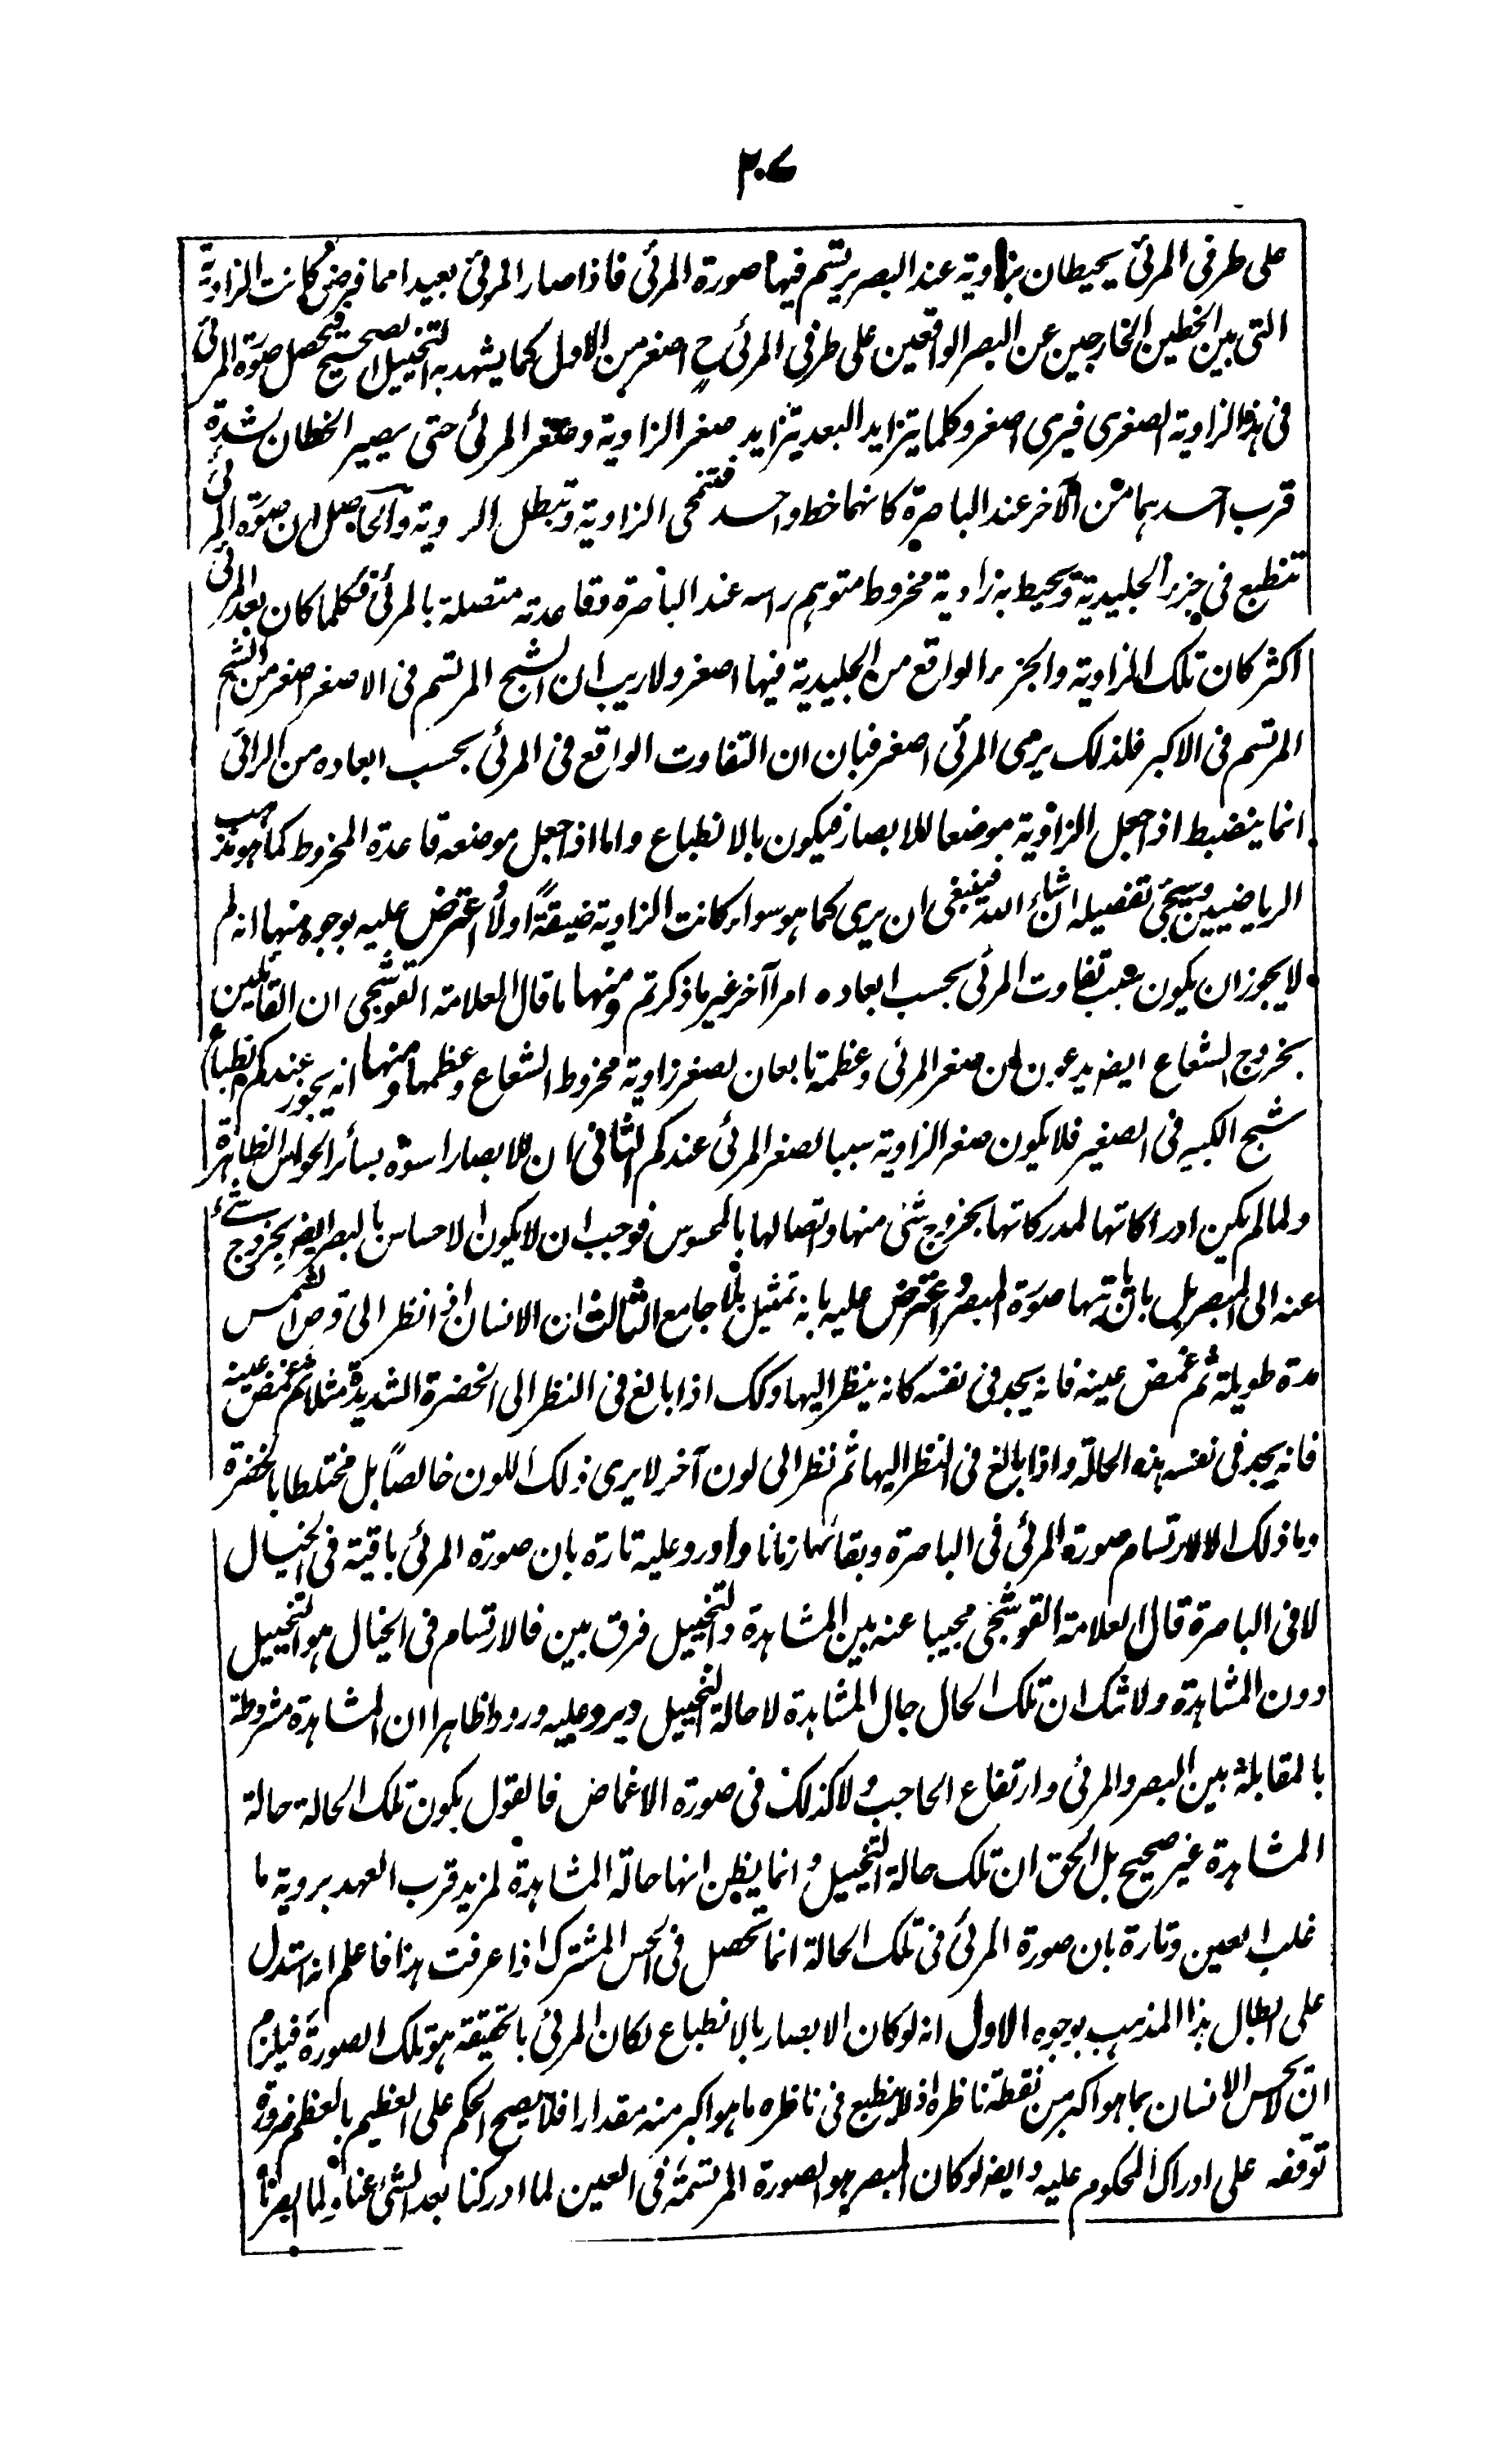 ٢٠٧
على طرفى المرئى يحيطان بزاوية عند البصر يرتسم فيها صورة المرئى فاذا صار المرئى بعيدا مما فرض كانت الزاوية
التى بين الخطين الخارجين عن البصر الواقعين على طرفى المرئى ح اصغر من الاول كما يشهد به التخييل الصحيح فتحصل صورة المرئى
فى هذه الزاوية الصغرى فيرى اصغر وكلما يتزايد البعد يتزايد صغر الزاوية وصغر المرئى حتى يصير الخطان لشدة
قرب احدهما من الآخر عند الباصرة كانهما خط واحد فتنمحى الزاوية وتبطل الروية والحاصل ان صورة المرئى
تنطبع فى جزء الجليدية وتحيط به زاوية مخروط متوهم راسه عند الباصرة وقاعدته متصلة بالمرئى فكلما كان بعد المرئى
اكثر كان تلك الزاوية والجزء الواقع من الجليدية فيها اصغر ولا ريب ان الشبح المرتسم فى الاصغر اصغر من الشبح
المرتسم فى الاكبر فلذلك يرى المرئى اصغر فبان ان التفاوت الواقع فى المرئى بحسب ابعاده من الرائى
انما ينضبط اذا جعل الزاوية موضعا للابصار فيكون بالانطباع واما اذا جعل موضعه قاعدة المخروط كما هو مذهب
الرياضيين وسيجئ تفصيله ان شاء الله فينبغى ان يرى كما هو سواء كانت الزاوية ضيقةً اولا اعترض عليه بوجوه منها انه لم
لا يجوز ان يكون سبب تفاوت المرئى بحسب ابعاده امرا آخر غير ما ذكرتم ومنها ما قال العلامة القوشجى ان القائلين
بخروج الشعاع ايضا يدعون ان صغر المرئى وعظمه تابعان لصغر زاوية مخروط الشعاع وعظمها ومنها انه يجوز عندكم انطباع
شبح الكبير فى الصغير فلا يكون صغر الزاوية سببا لصغر المرئى عندكم الثانى ان للابصار اسوة بسائر الحواس الظاهرة
ولما لم يكن ادراكاتها لمدركاتها بخروج شئ منها واتصالها بالمحسوس فوجب ان لا يكون الاحساس بالبصر ايضا بخروج شئ
عنه الى المبصر بل بان ياتيها صورة المبصر اعترض عليه بانه تمثيل بلا جامع الثالث ان الانسان اذا نظر الى قرص الشمس
مدة طويلة ثم غمض عينه فانه يجد فى نفسه كانه ينظر اليها وكك اذا بالغ فى النظر الى الخضرة الشديدة مثلا ثم غمض عينه
فانه يجد فى نفسه هذه الحالة واذا بالغ فى النظر اليها ثم نظر الى لون آخر لا يرى ذلك اللون خالصًا بل مختلطا بالخضرة
وما ذلك الا لارتسام صورة المرئى فى الباصرة وبقائها زمانا واورد عليه تارة بان صورة المرئى باقية فى الخيال
لا فى الباصرة قال العلامة القوشجى مجيبا عنه بين المشاهدة والتخييل فرق بين فالارتسام فى الخيال هو التخييل
دون المشاهدة ولا شك ان تلك الحال حال المشاهدة لا حالة التخييل ويرد عليه ورودا ظاهرا ان المشاهدة مشروطة
بالمقابلة بين البصر والمرئى وارتفاع الحاجب ولا كذلك فى صورة الاغماض فالقول بكون تلك الحالة حالة
المشاهدة غير صحيح بل الحق ان تلك حالة التخييل وانما يظن انها حالة المشاهدة لمزيد قرب العهد بروية ما
غلب العين وتارة بان صورة المرئى فى تلك الحالة انما تحصل فى الحس المشترك اذا عرفت هذا فاعلم انه استدل
على ابطال هذا المذهب بوجوه الاول انه لو كان الابصار بالانطباع لكان المرئى بالحقيقة هو تلك الصورة فيلزم
ان لا يحس الانسان بما هو اكبر من نقطة ناظره اذ لا ينطبع فى ناظره ما هو اكبر منه مقدارا فلا يصح الحكم على العظيم بالعظم ضرورة
توقفه على ادراك المحكوم عليه وايضا لو كان المبصر هو الصورة المرتسمة فى العين لما ادركنا بعد الشئ عنا ولما ابصرنا